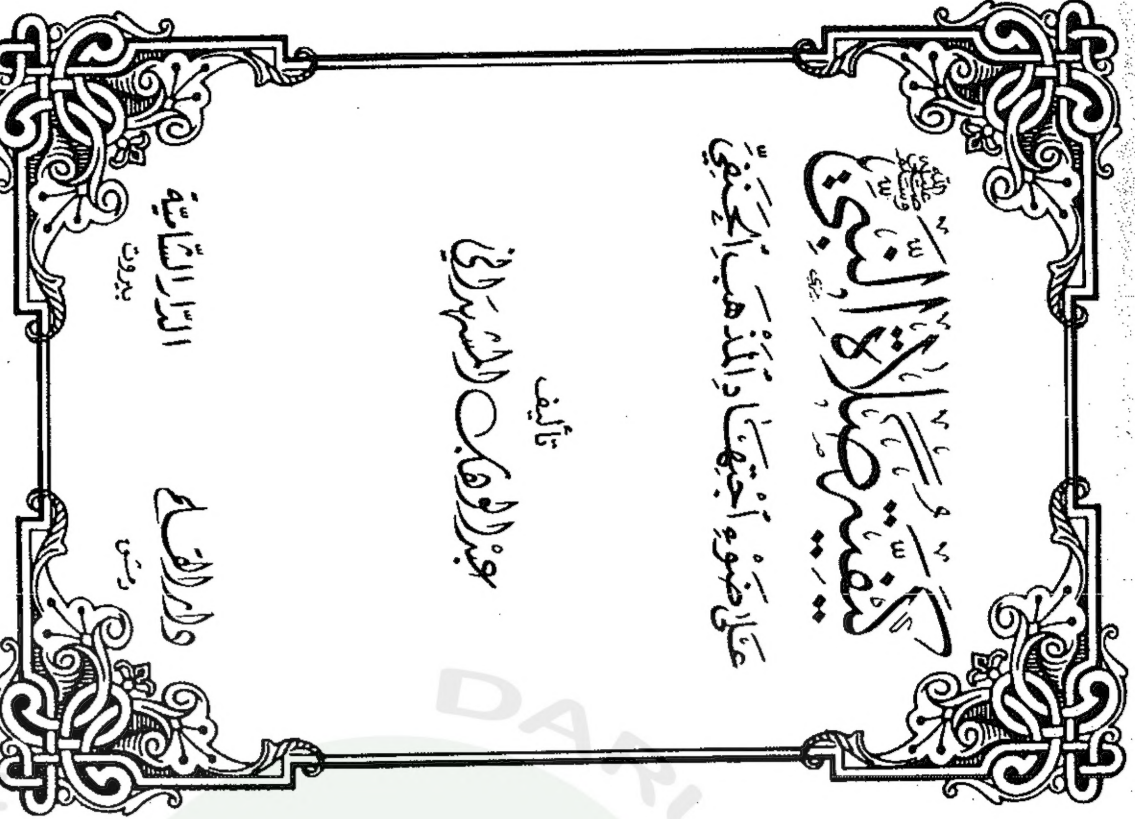 كيفية صلاة النبي
صلى الله عليه وسلم
على ضوء اجتهاد المذهب الحنفي
تأليف
عبد الوهاب
دار القلم
دمشق
الدار الشامية
بيروت
DARU